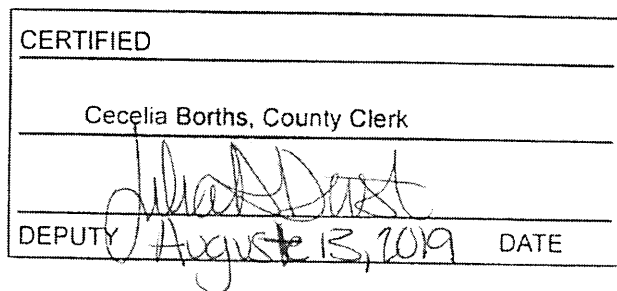 CERTIFIED
Cecelia Borths, County Clerk
DEPUTY August 13, 2019 DATE